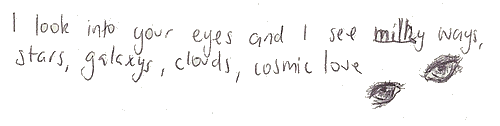 I look into your eyes and I see milky ways,
stars, galaxys, clouds, cosmic love